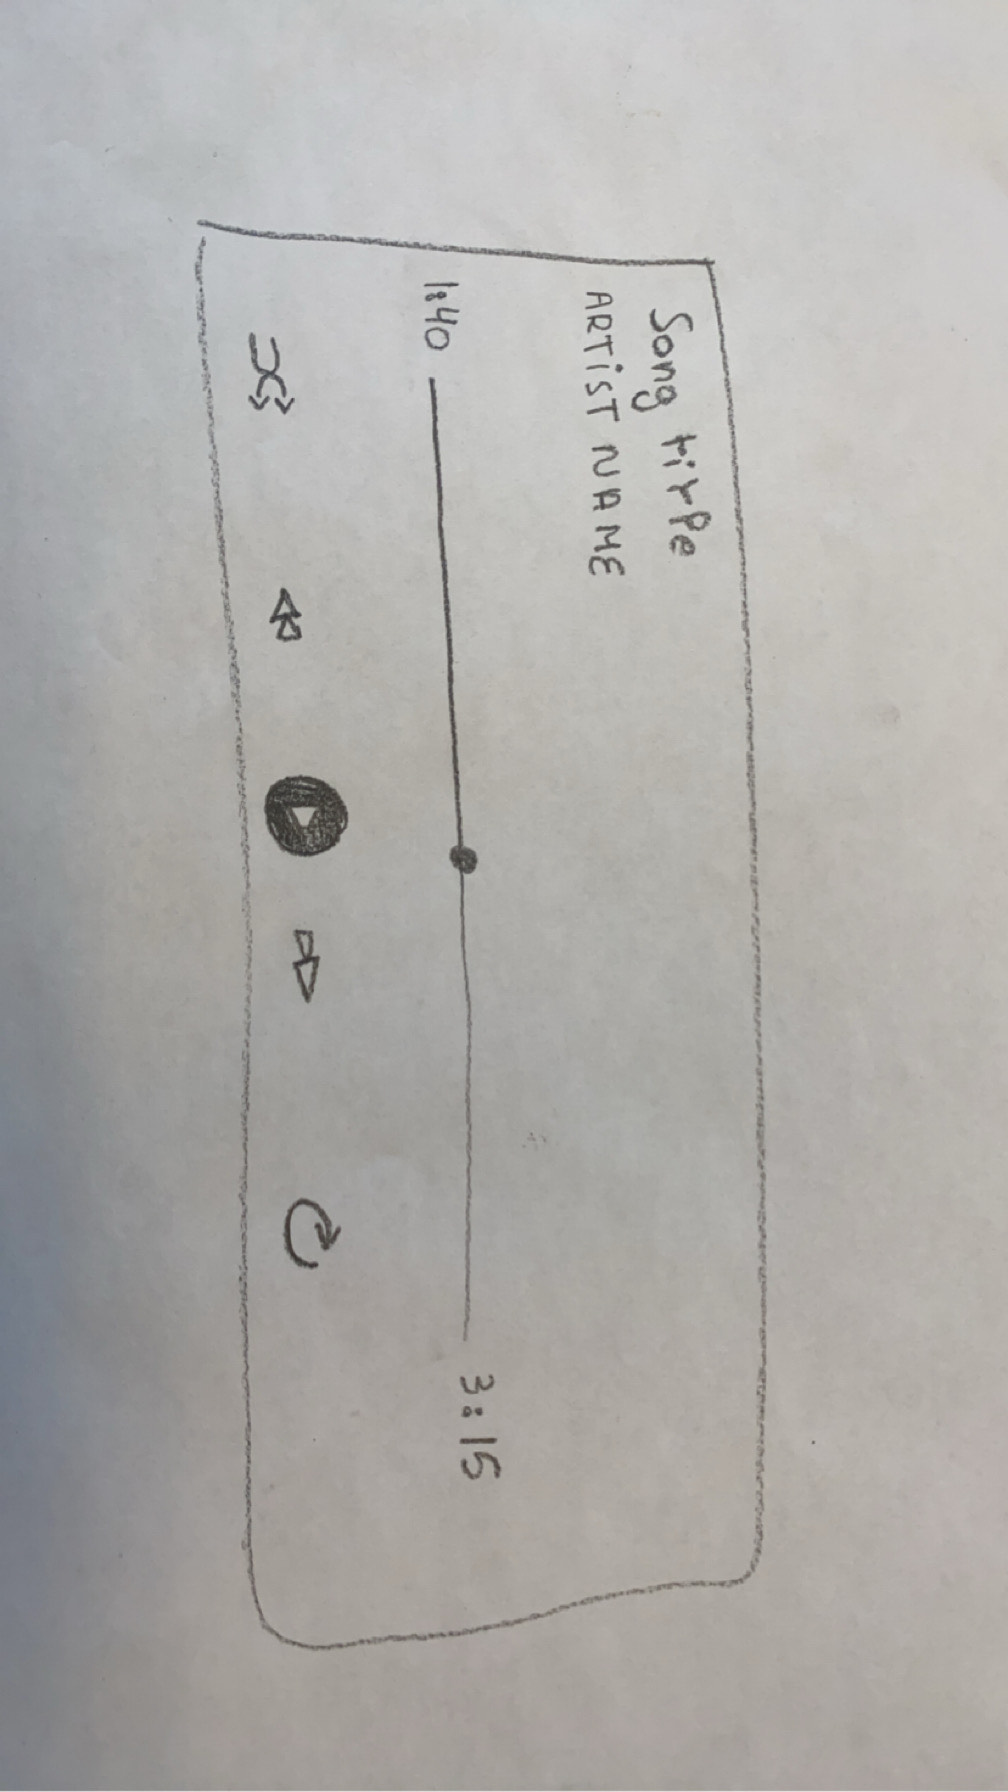 Song title
ARTiST NAME
1:40
3:15